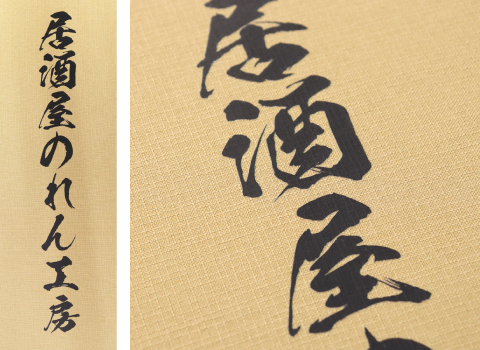 居酒屋のれん工房
居酒屋